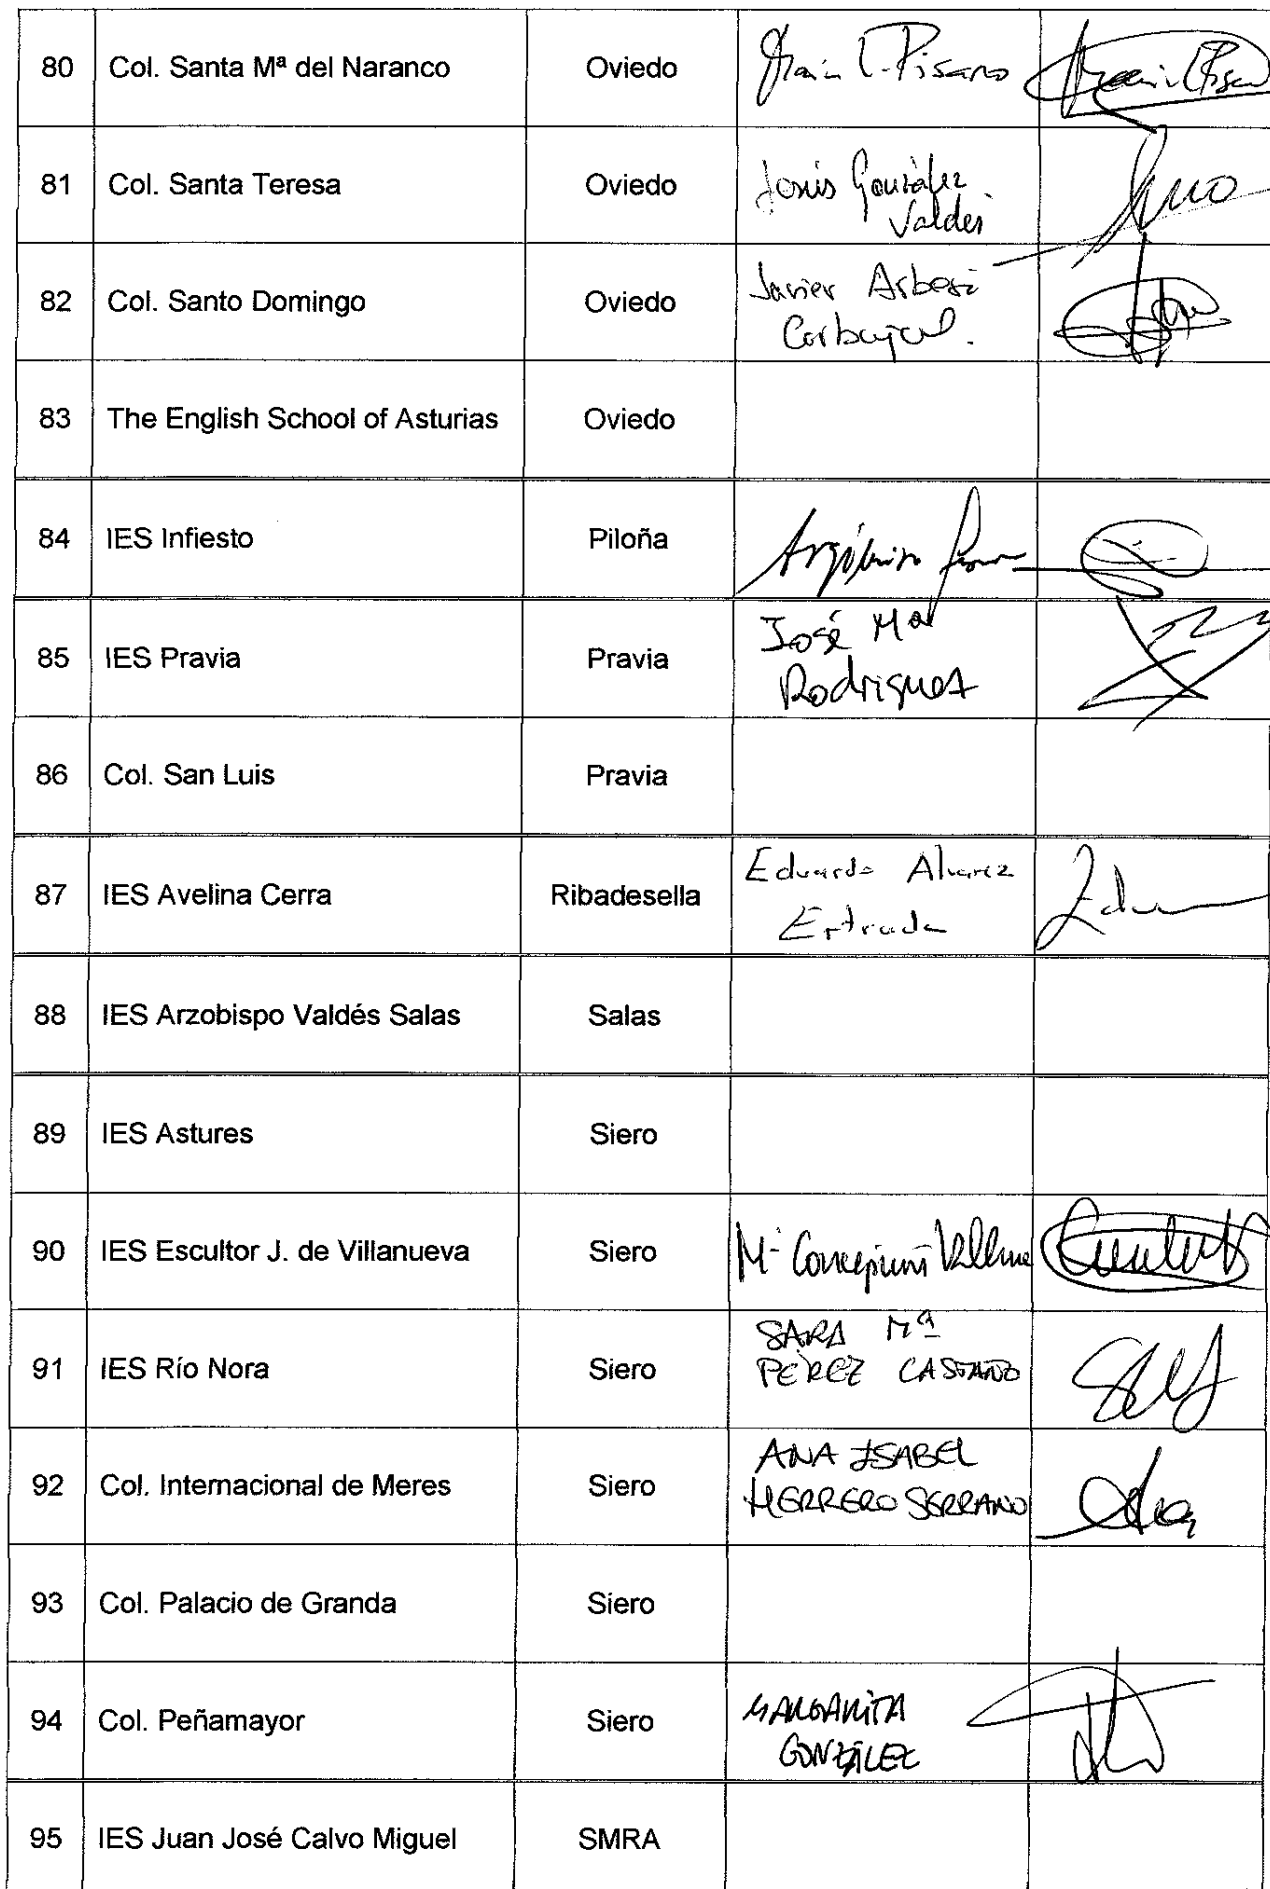 80 Col. Santa Mª del Naranco Oviedo Pisano
81 Col. Santa Teresa Oviedo Jesús González
Valdés
82 Col. Santo Domingo Oviedo Javier Arbesú
Carbajal.
83 The English School of Asturias Oviedo
84 IES Infiesto Piloña
85 IES Pravia Pravia José Mª
Rodríguez
86 Col. San Luis Pravia
87 IES Avelina Cerra Ribadesella Eduardo Alvarez
Estrada
88 IES Arzobispo Valdés Salas Salas
89 IES Astures Siero
90 IES Escultor J. de Villanueva Siero Mª Concepción
91 IES Río Nora Siero SARA Mª
PÉREZ CASTAÑO
92 Col. Internacional de Meres Siero ANA ISABEL
HERRERO SERRANO
93 Col. Palacio de Granda Siero
94 Col. Peñamayor Siero MARGARITA
GONZÁLEZ
95 IES Juan José Calvo Miguel SMRA